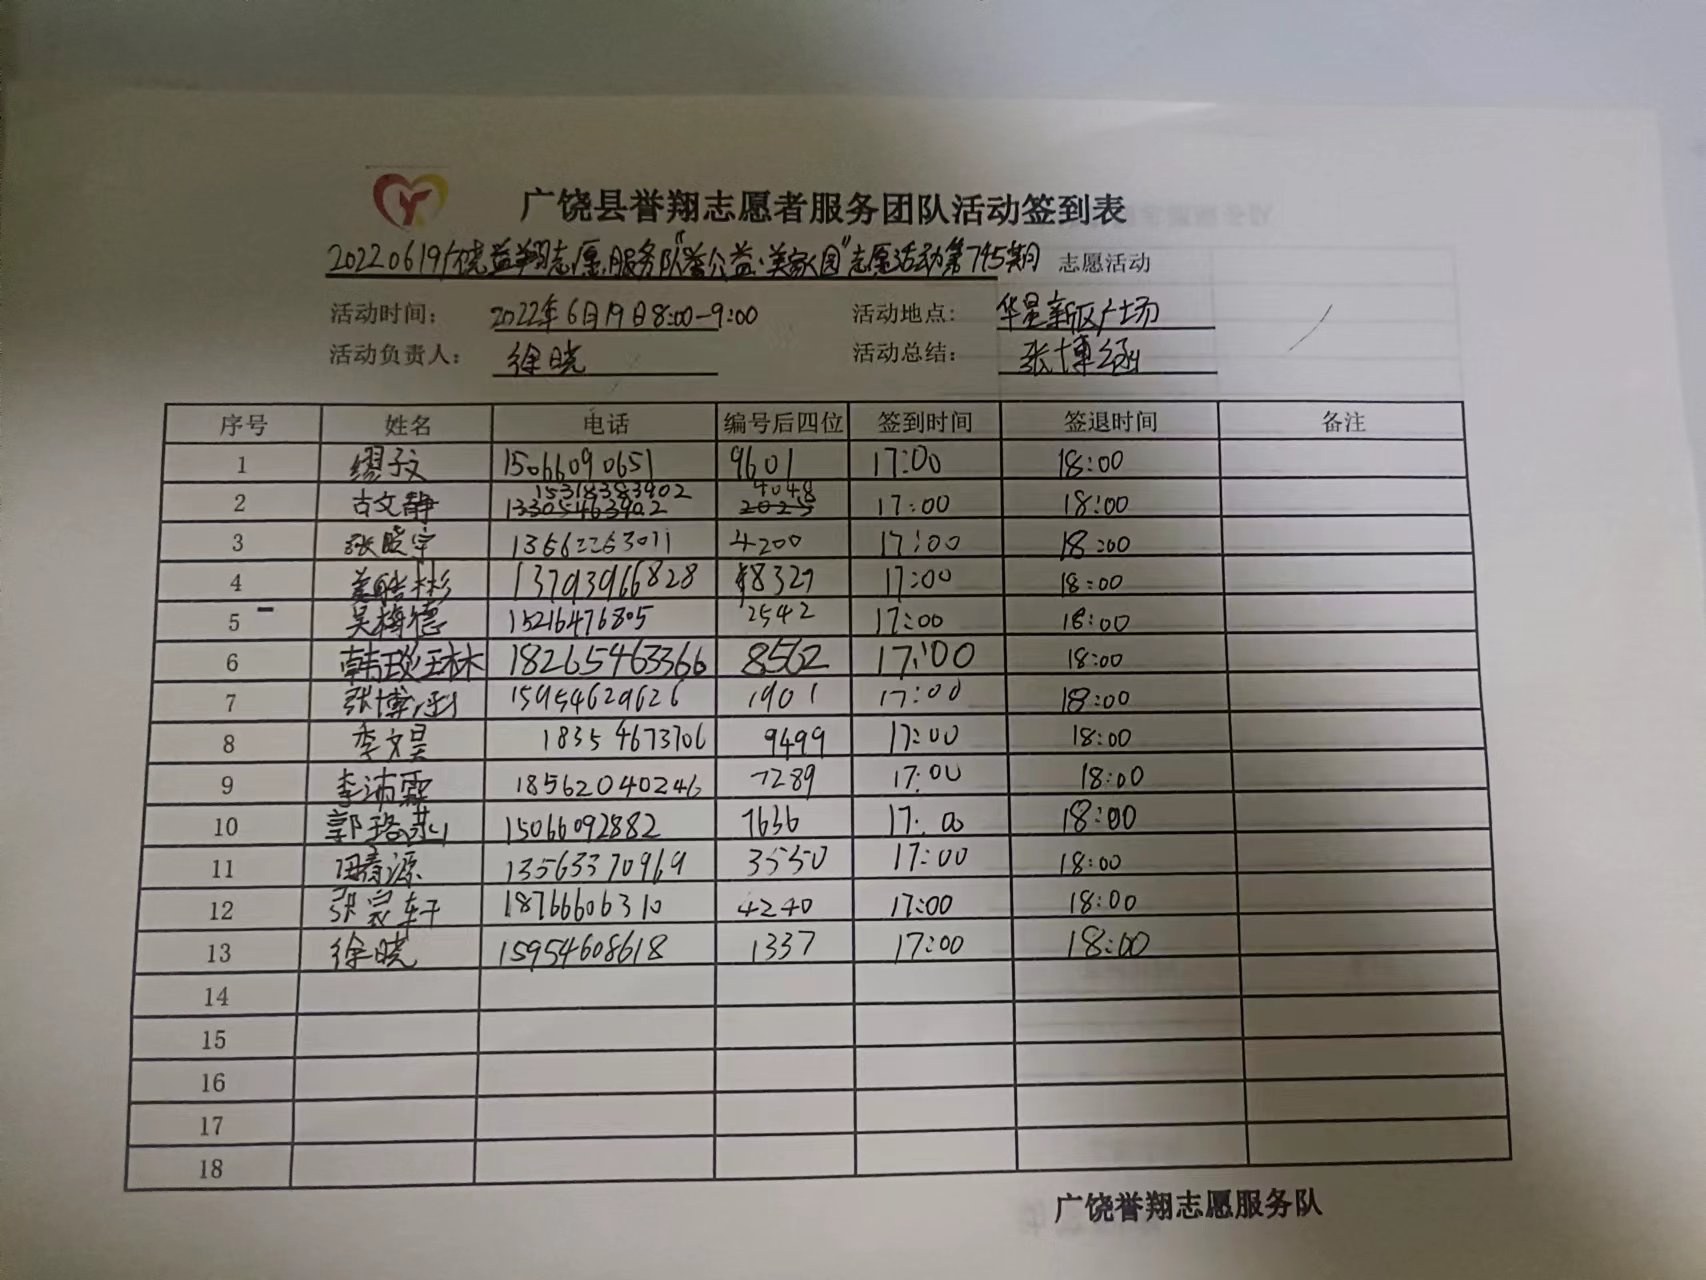 广饶县誉翔志愿者服务团队活动签到表
20220619广饶益翔志愿服务队“誉公益·美家园”志愿活动第745期 志愿活动
活动时间： 2022年6月19日8:00-9:00 活动地点： 华星新区广场
活动负责人： 徐晓 活动总结： 张博涵
序号 姓名 电话 编号后四位 签到时间 签退时间 备注
1 缪子文 15066090651 9601 17:00 18:00
2 古文静 15318383902 4048 17:00 18:00
13305463902 2025
3 张晓宇 13562263071 4200 17:00 18:00
4 13793966828 8327 17:00 18:00
5 吴梅德 15216476805 2542 17:00 18:00
6 韩琰林 18265463366 8562 17:00 18:00
7 张博涵 15954629626 1901 17:00 18:00
8 李文昊 18354673706 9499 17:00 18:00
9 李沛霖 18562040246 7289 17:00 18:00
10 郭珞 15066092882 7636 17:00 18:00
11 源 13563370969 3550 17:00 18:00
12 张宸轩 18766606310 4240 17:00 18:00
13 徐晓 15954608618 1337 17:00 18:00
14
15
16
17
18
广饶誉翔志愿服务队